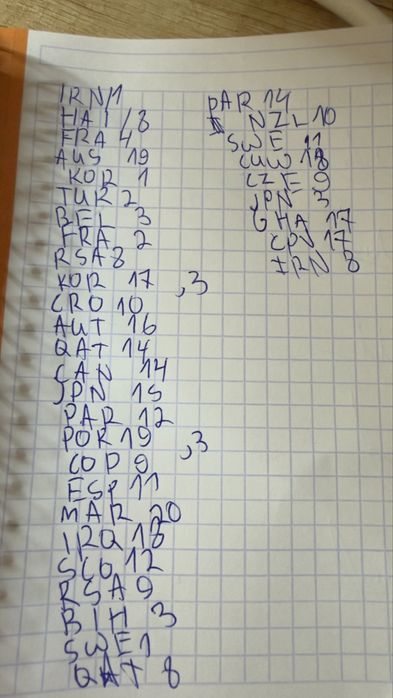 IRN 1
HAI 8
FRA 4
AUS 19
KOR 1
TUR 2
BEL 3
FRA 2
RSA 8
KOR 17 ,3
CRO 10
AUT 16
QAT 14
CAN 14
JPN 15
PAR 12
POR 19 ,3
COP 9
ESP 11
MAR 20
IRQ 18
SCO 12
RSA 9
BIH 3
SWE 1
QAT 8
PAR 14
NZL 10
SWE 11
CUW 18
CZE 9
JPN 3
GHA 17
CPV 17
IRN 8